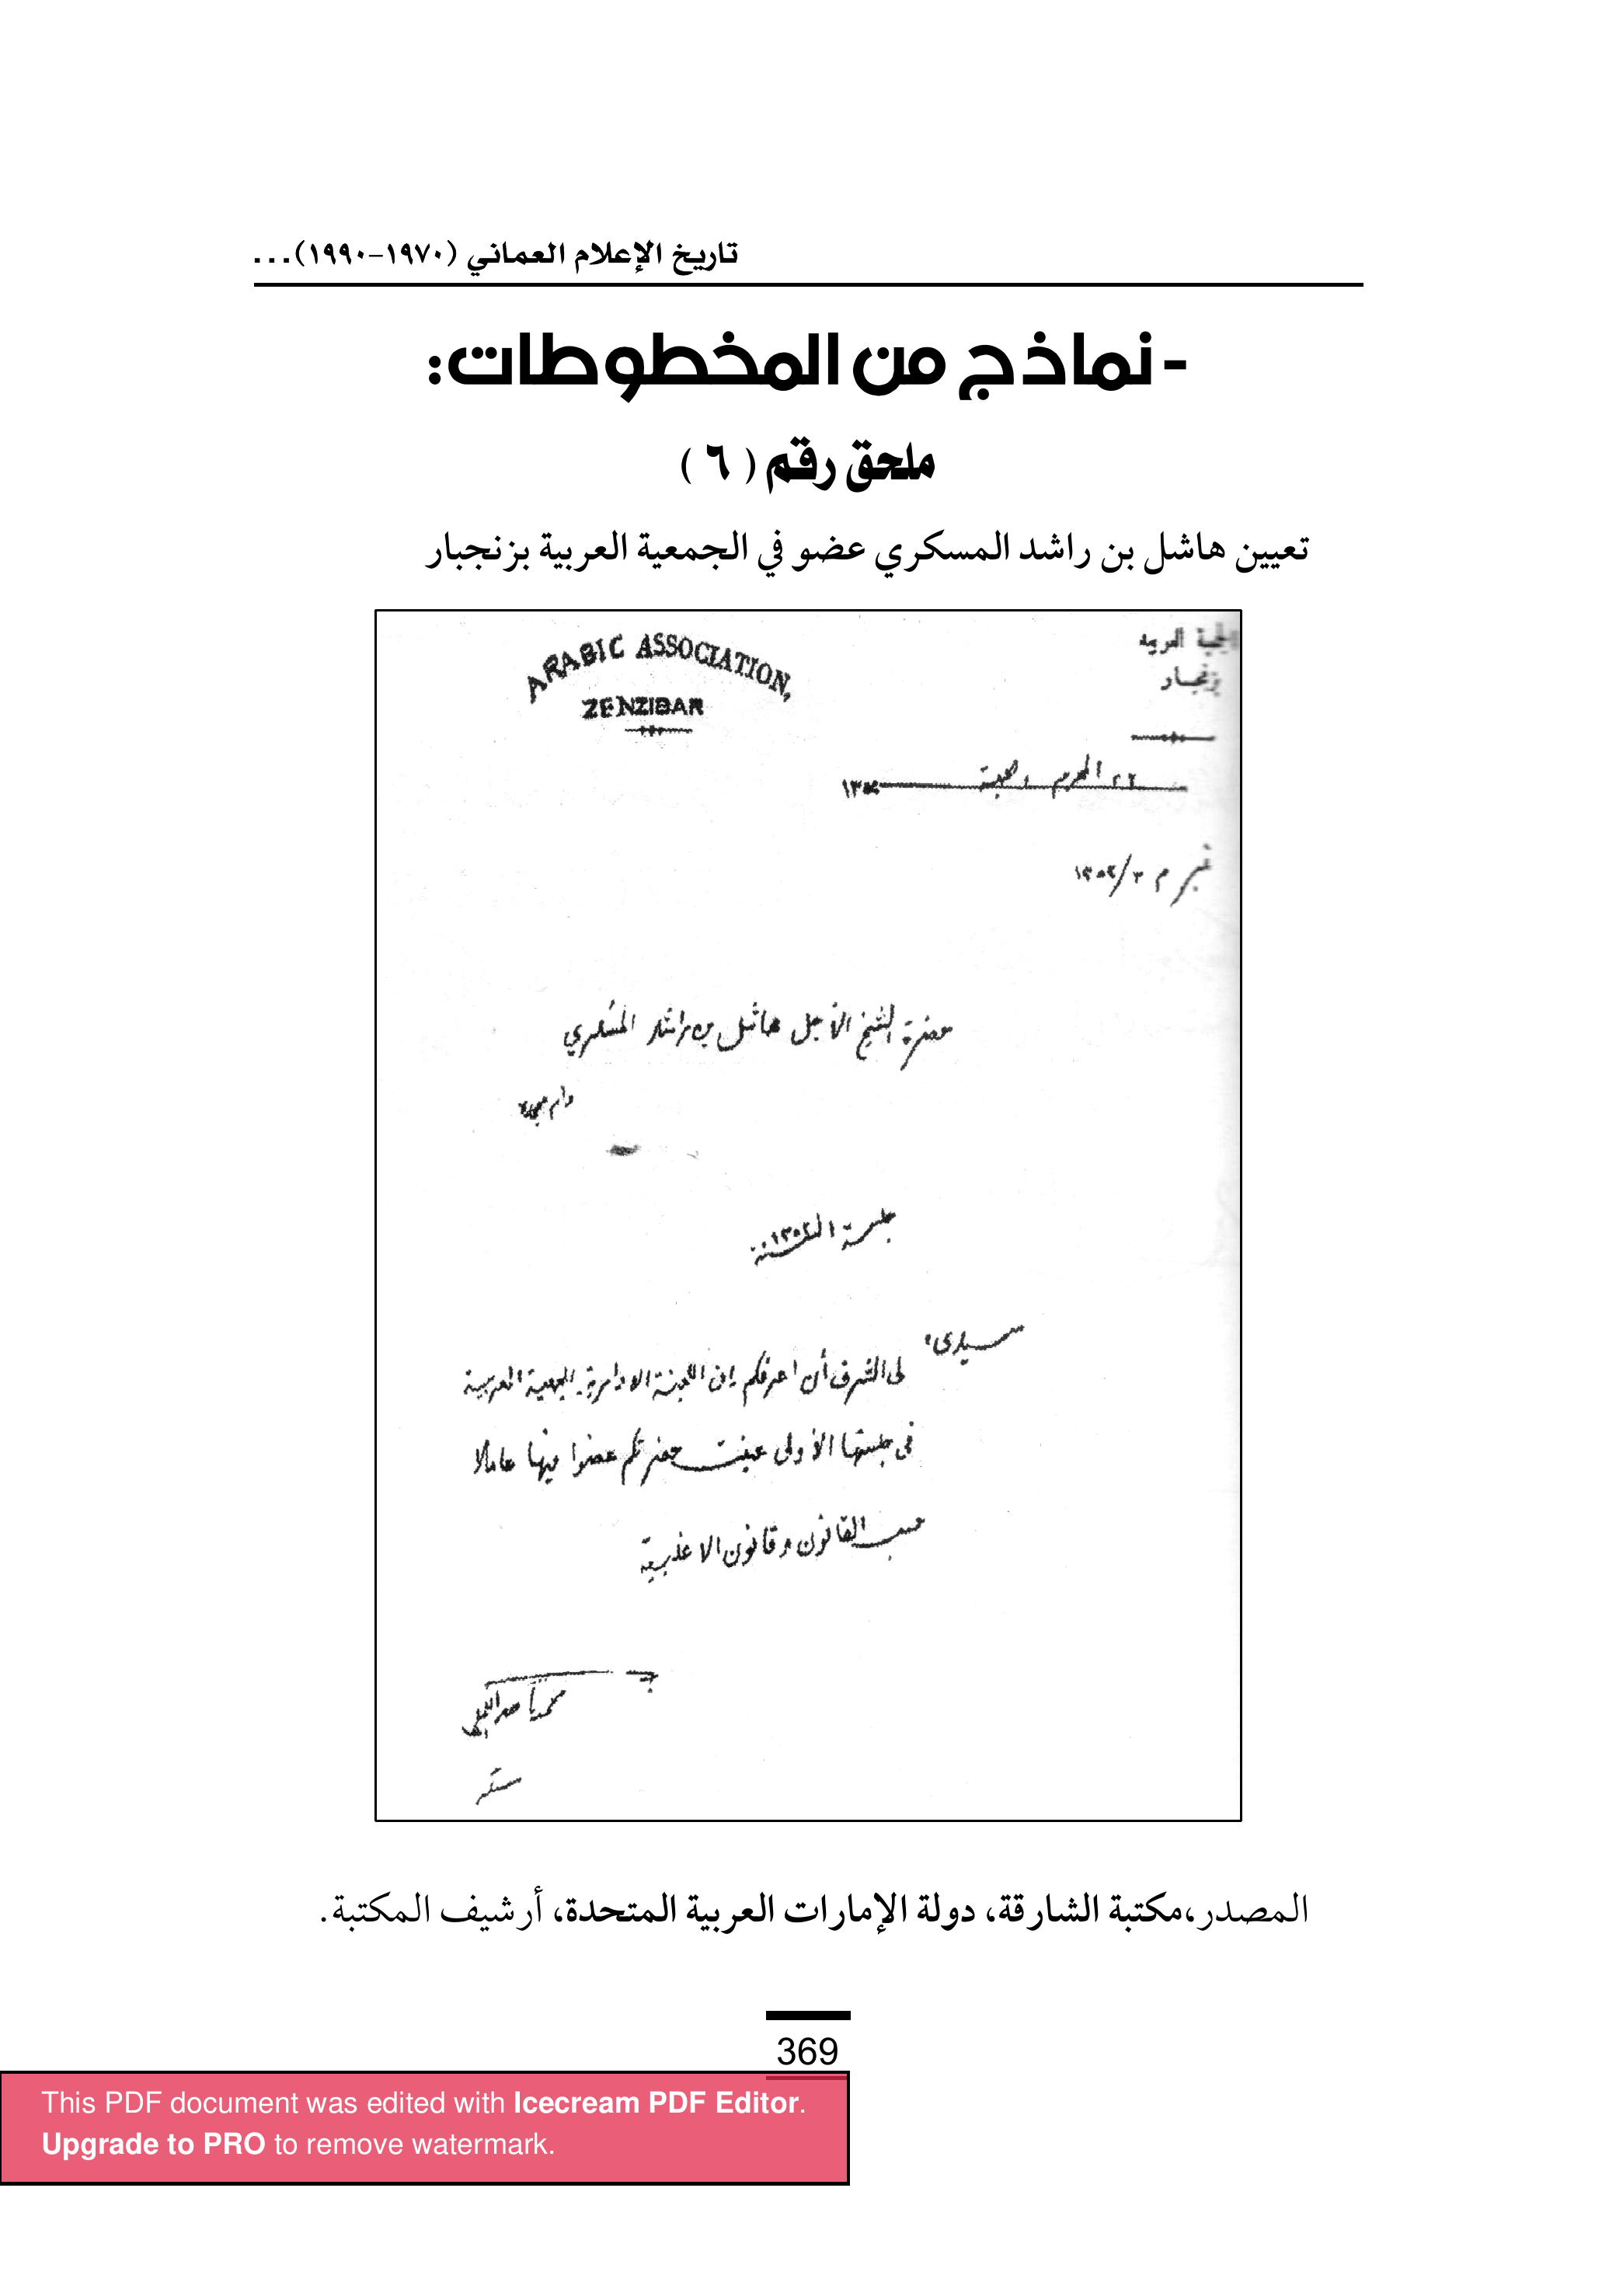 تاريخ الإعلام العماني (١٩٧٠-١٩٩٠)...
- نماذج من المخطوطات:
ملحق رقم ( ٦ )
تعيين هاشل بن راشد المسكري عضو في الجمعية العربية بزنجبار
ARABIC ASSOCIATION,
ZENZIBAR
الجمعية العربية
بزنجبار
٢٦ المحرم
نمبر م ٣/١٣٥٢
حضرة الشيخ الأجل هاشل بن راشد المسكري
دام مجده
جلسة السنة ١٣٥٢
سيدي،
لى الشرف أن اعرفكم بان اللجنة الادارية للجمعية العربية
فى جلستها الأولى عينت حضرتكم عضوا فيها عاملا
حسب القانون وقانون الاغلبية
المصدر،مكتبة الشارقة، دولة الإمارات العربية المتحدة، أرشيف المكتبة.
369
This PDF document was edited with Icecream PDF Editor.
Upgrade to PRO to remove watermark.